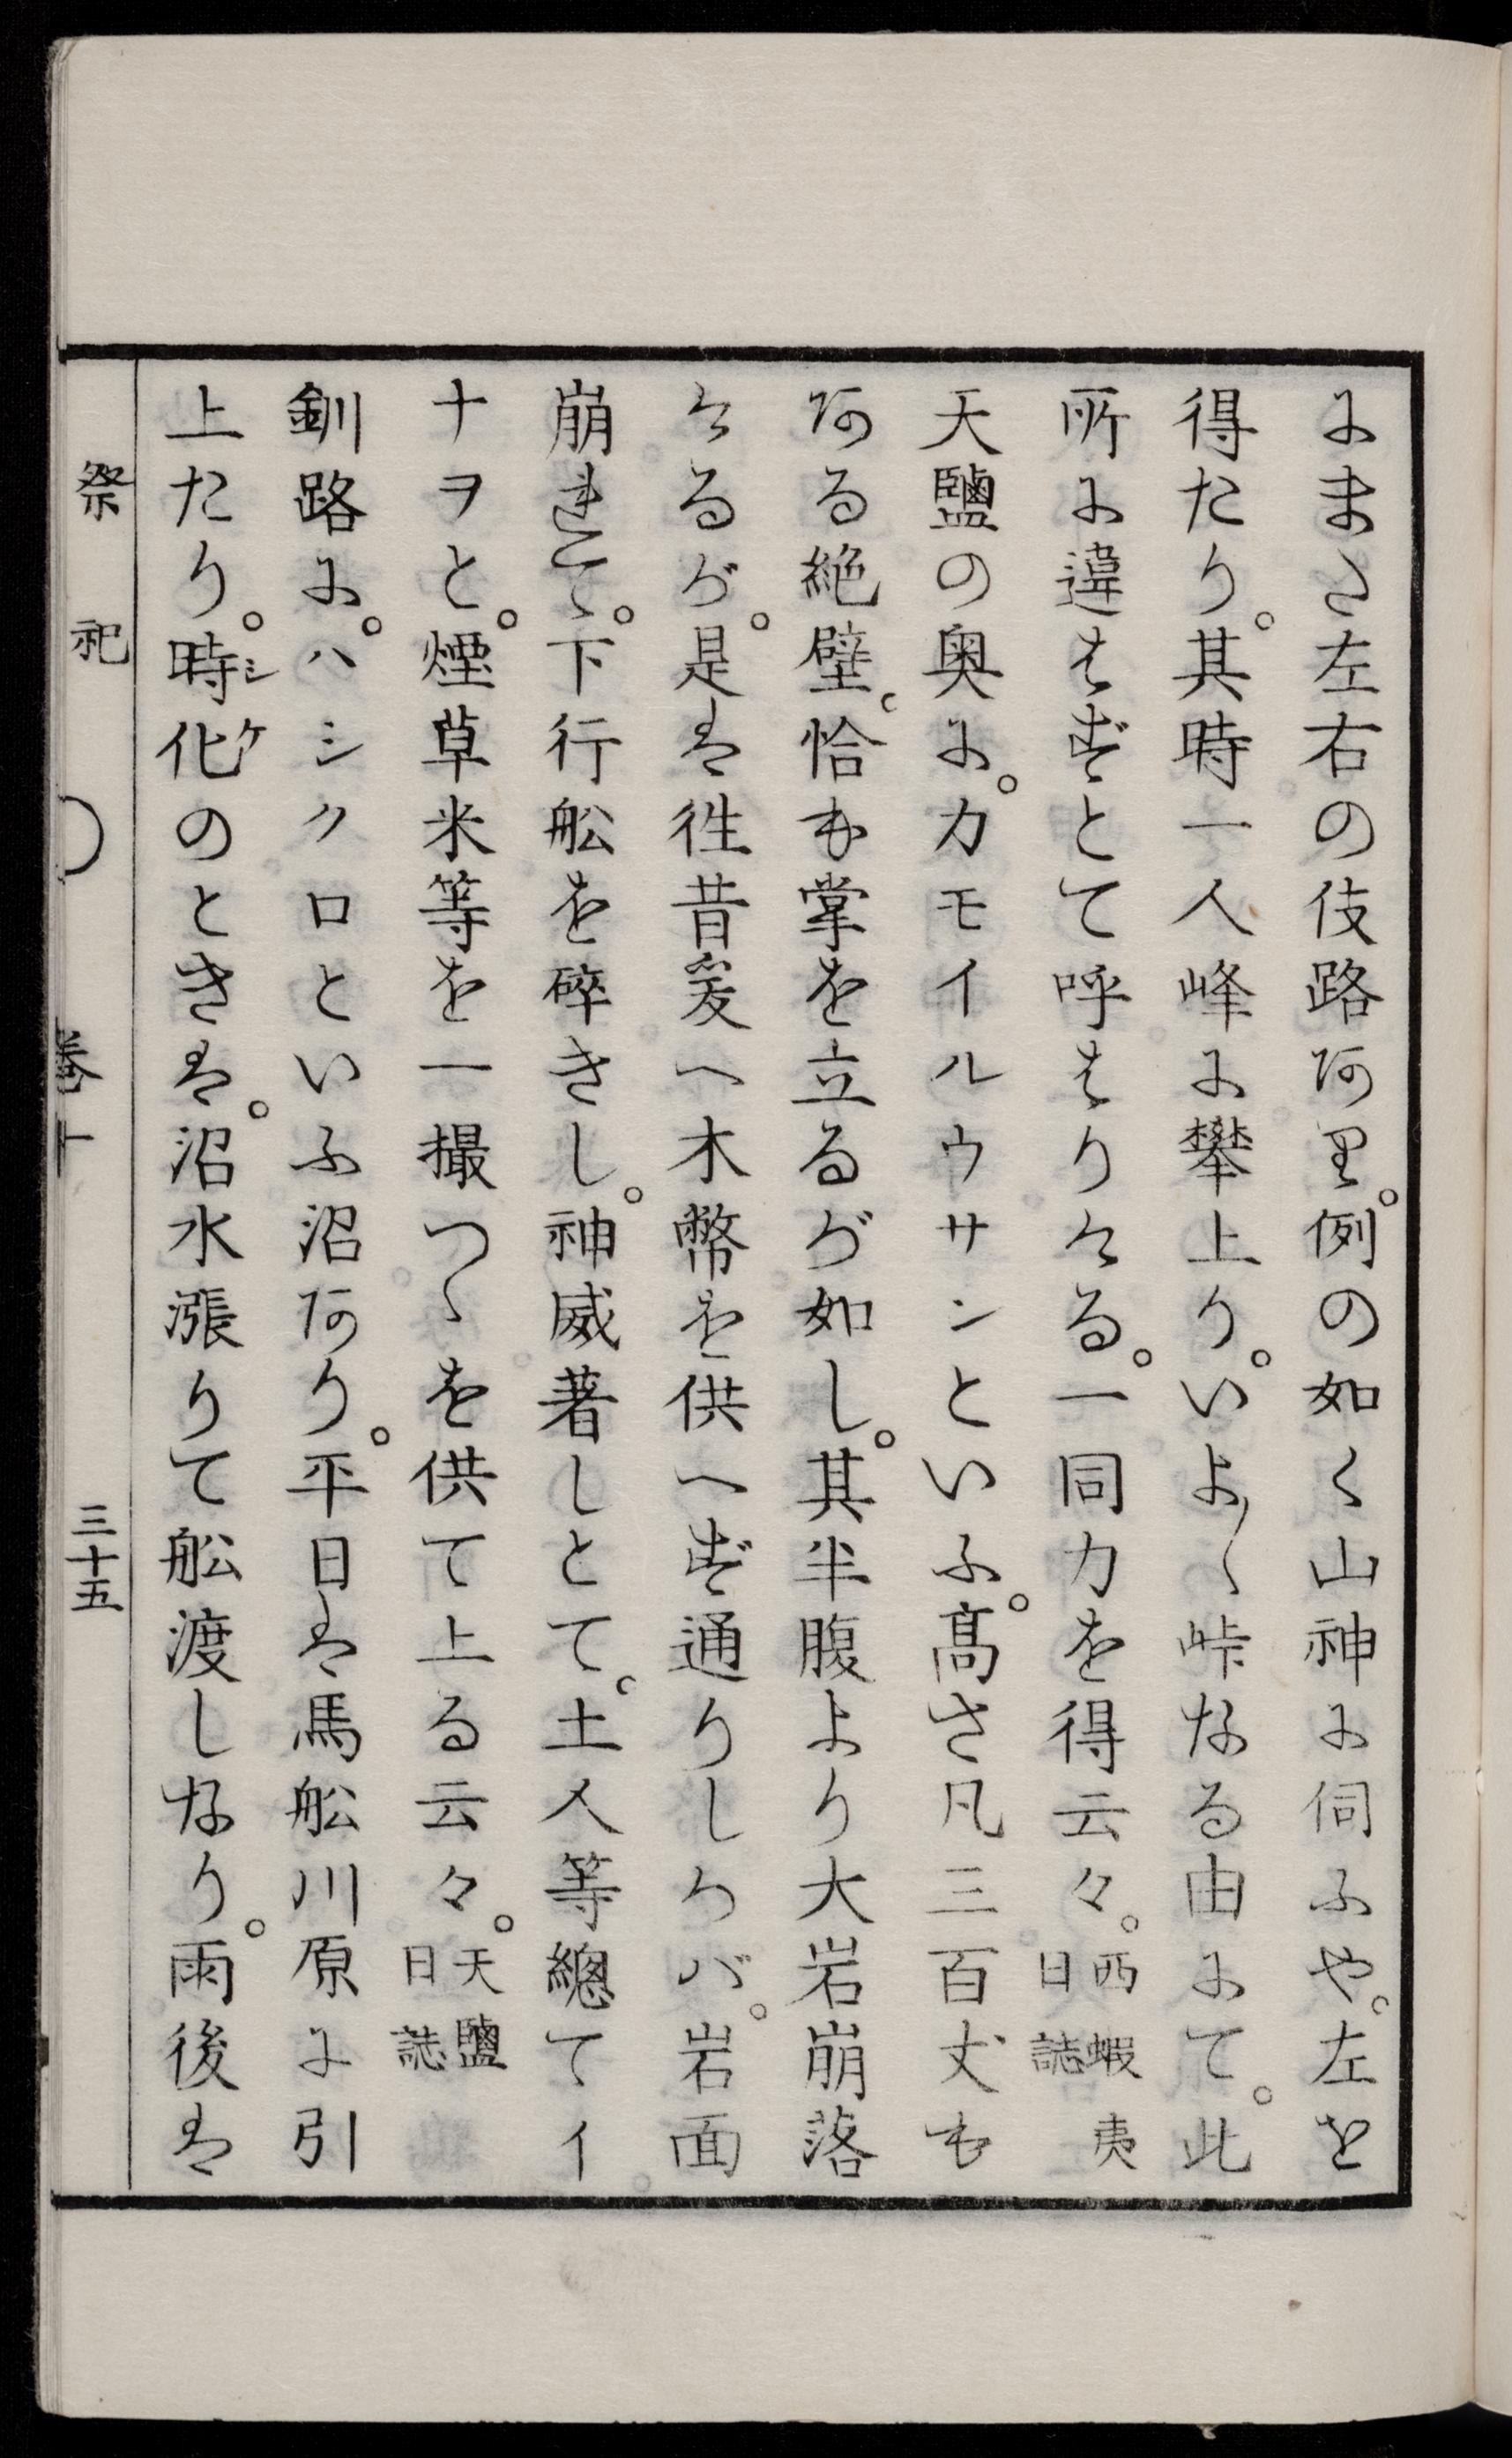 にまた左右の伎路あり。例の如く山神に伺ふや。左を
得たり。其時一人峰に攀上り。いよ〳〵峠なる由にて。此
所に違はずとて呼はりける。一同力を得云々。西蝦夷日誌
天鹽の奥に。カモイルウサンといふ。髙さ凡三百丈も
ある絶壁。恰も掌を立るが如し。其半腹より大岩崩落
けるが。是は徃昔爰へ木幣を供へず通りしかバ。岩面
崩れて。下行舩を碎きし。神威著しとて。土人等總てイ
ナヲと。煙草米等を一撮つゝを供て上る云々。天鹽日誌
釧路に。ハシクロといふ沼あり。平日は馬舩川原に引
上たり。時化のときは。沼水漲りて舩渡しなり。雨後は
シケ
祭祀 巻十 三十五